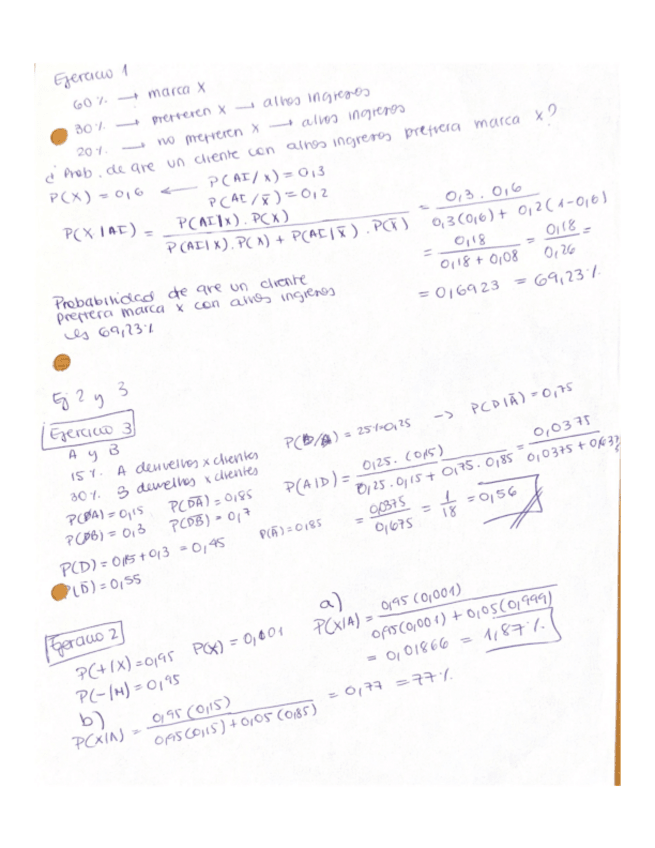 Ejercicio 1
60% → marca X
30% → prefieren X → altos ingresos
20% → no prefieren X → altos ingresos
¿Prob. de que un cliente con altos ingresos prefiera marca X?
P(X) = 0,6 ← P(AI/X) = 0,3
P(AI/X̄) = 0,2
P(X|AI) = P(AI|X). P(X) / P(AI|X). P(X) + P(AI|X̄) . P(X̄) = 0,3 . 0,6 / 0,3(0,6) + 0,2(1-0,6)
= 0,18 / 0,18 + 0,08 = 0,18 / 0,26 =
= 0,6923 = 69,23%
Probabilidad de que un cliente
prefiera marca X con altos ingresos
es 69,23%
Ej 2 y 3
Ejercicio 3
A y B
15% A devueltos x clientes
30% B devueltos x clientes
P(DA) = 0,15 P(D̄A) = 0,85
P(DB) = 0,3 P(D̄B) = 0,7
P(D) = 0,15 + 0,3 = 0,45
P(D̄) = 0,55
= 25% = 0,25 → P(D|Ā) = 0,75
P(A|D) = 0,25 . (0,15) / 0,25 . 0,15 + 0,75 . 0,85 = 0,0375 / 0,0375 + 0,637
P(Ā) = 0,85
= 0,0375 / 0,675 = 1 / 18 = 0,56
Ejercicio 2
P(+/X) = 0,95 P(X) = 0,001
P(-/M) = 0,95
a)
P(X/A) = 0,95(0,001) / 0,95(0,001) + 0,05(0,999)
= 0,01866 = 1,87%
b)
P(X/A) = 0,95(0,15) / 0,95(0,15) + 0,05(0,85) = 0,77 = 77%